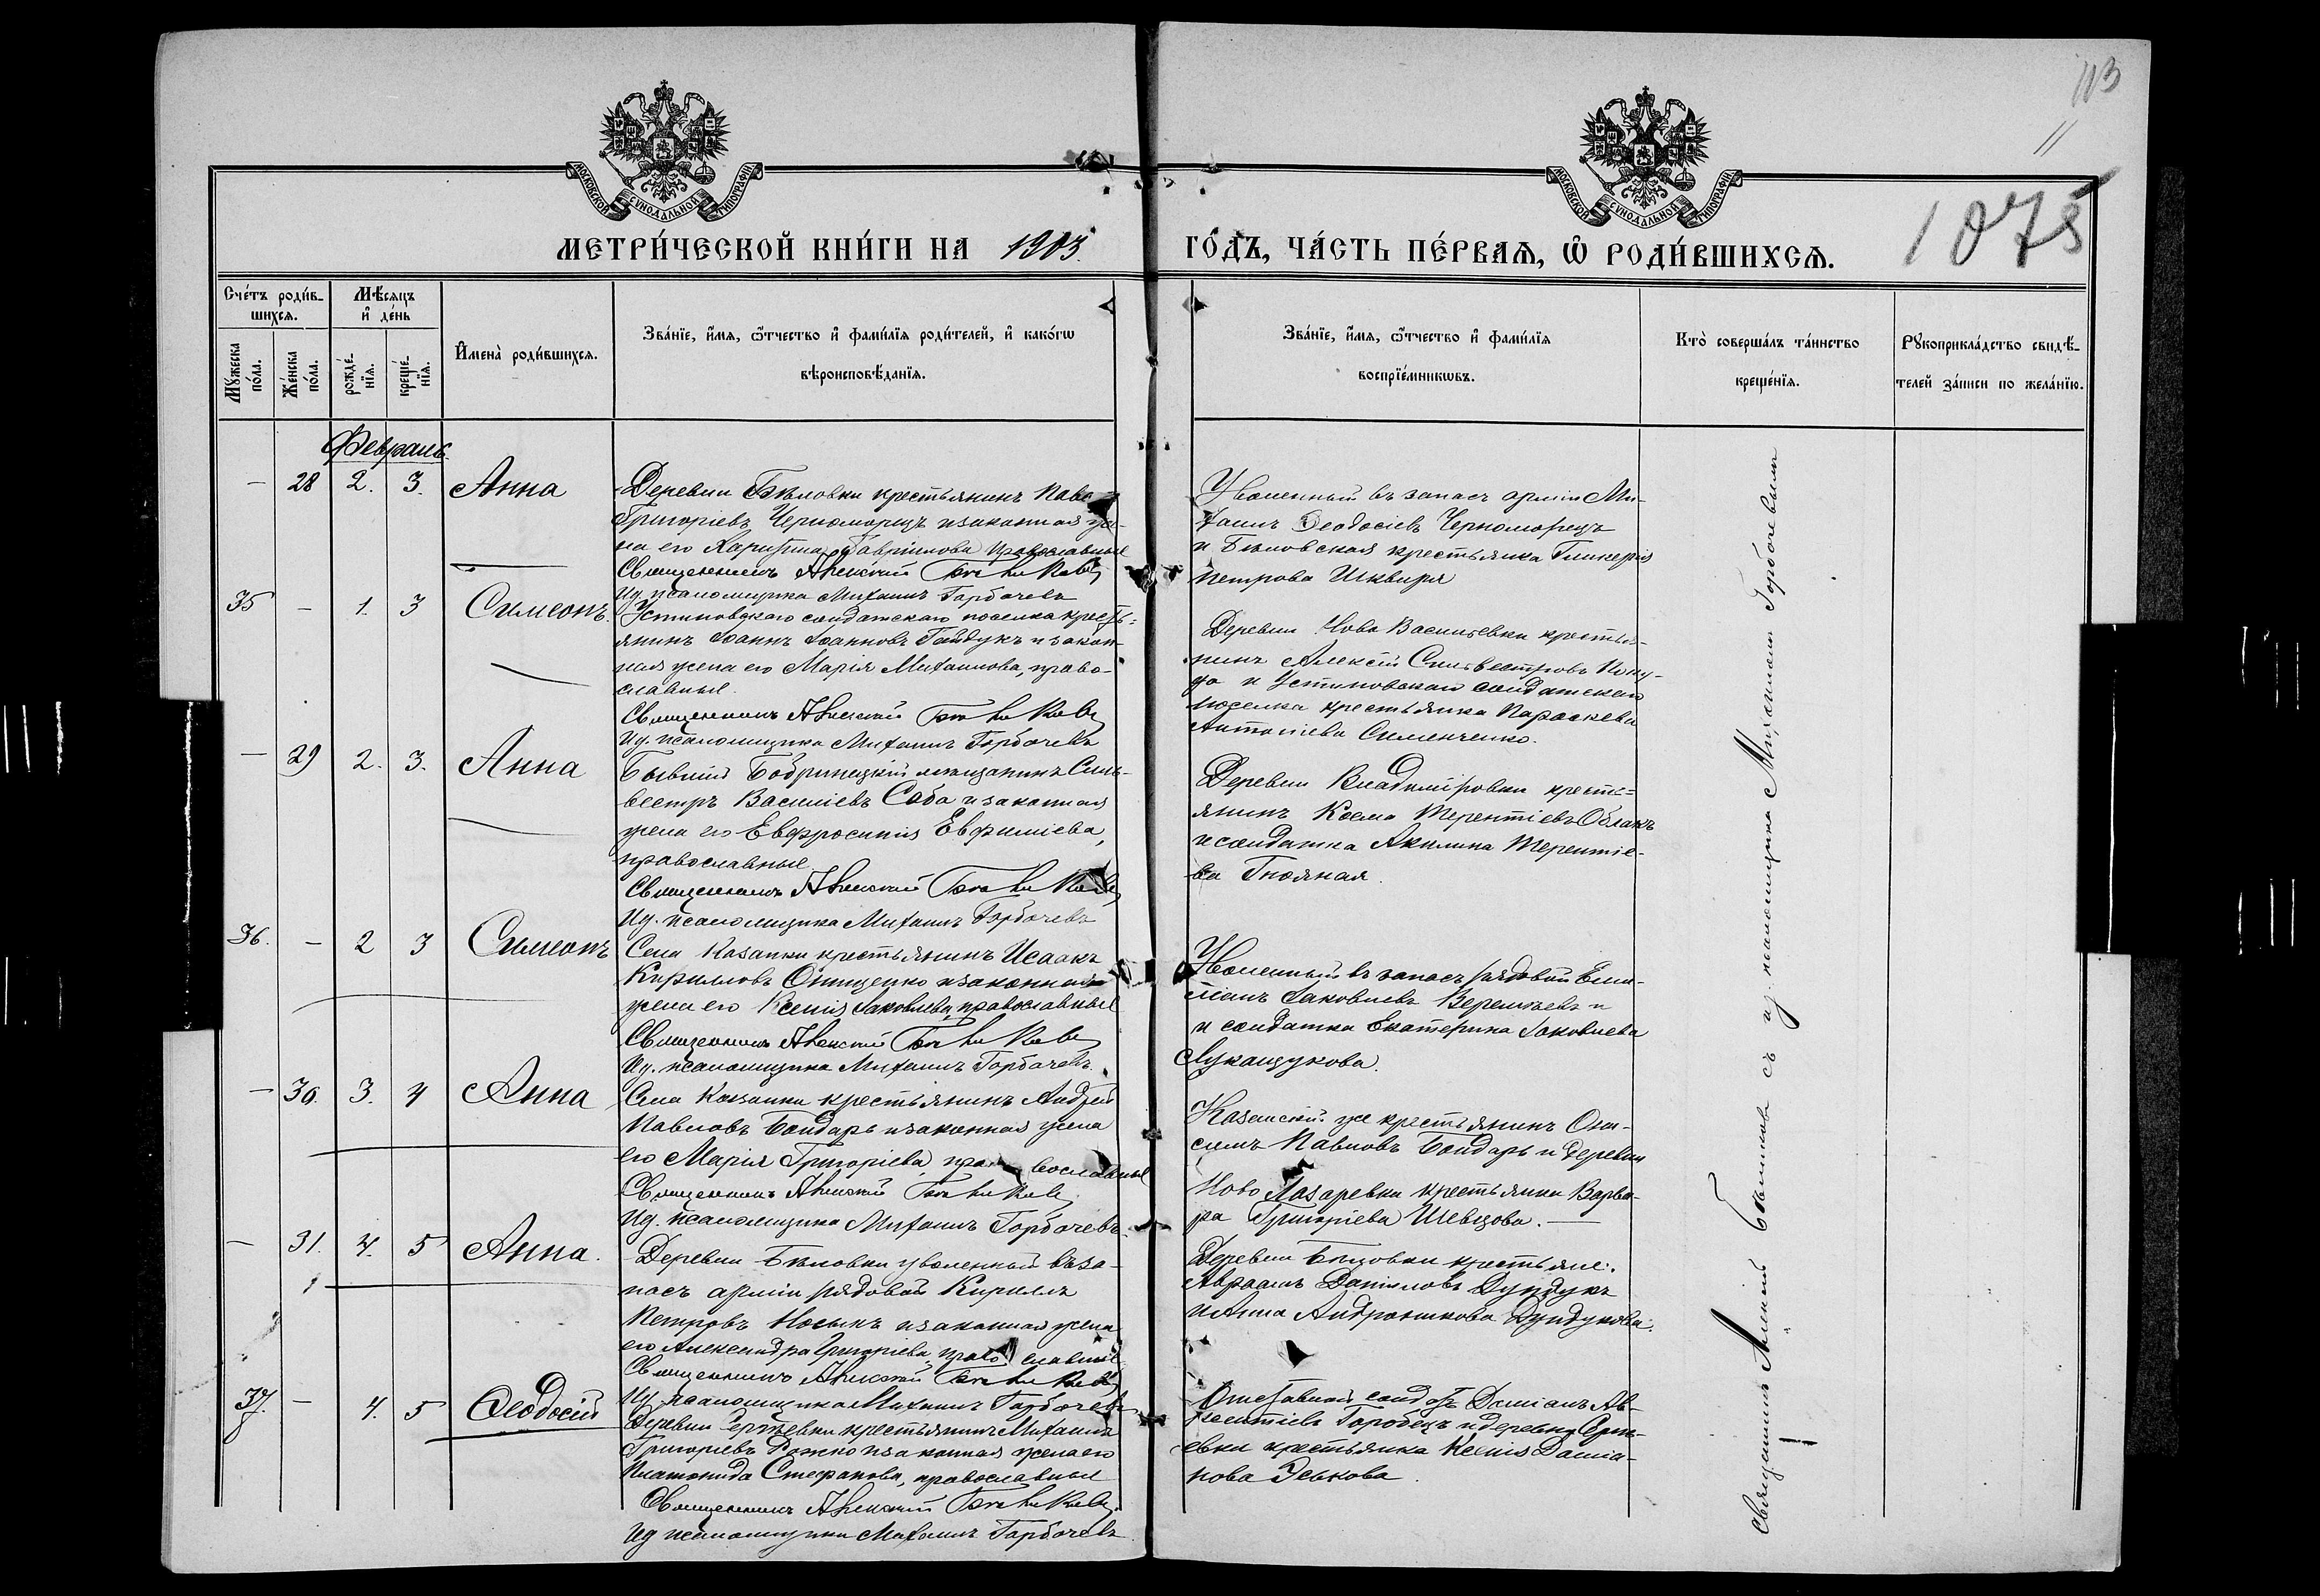 113
11
1075
МОСКОВСКОЙ СУНОДАЛЬНОЙ ТИПОГРАФІИ
МОСКОВСКОЙ СУНОДАЛЬНОЙ ТИПОГРАФІИ
МЕТРИ́ЧЕСКОЙ КНИ́ГИ НА 1903. ГО́ДЪ, ЧА́СТЬ ПЕ́РВАѦ, Ѽ РОДИ́ВШИХСѦ.
Сче́тъ роди́в-
шихсѧ.
Мꙋ́жеска по́ла.
Же́нска по́ла.
Мѣ́сѧцъ
и҆ де́нь
рожде́-
нїѧ.
креще́-
нїѧ.
И҆мена̀ роди́вшихсѧ.
Зва́нїе, и҆́мѧ, ѻ҆́тчество и҆ фами́лїѧ роди́телей, и҆ како́гѡ
вѣроисповѣ́данїѧ.
Зва́нїе, и҆́мѧ, ѻ҆́тчество и҆ фами́лїѧ
воспрїе́мникѡвъ.
Кто̀ соверша́лъ та́инство
креще́нїѧ.
Рꙋкоприкла́дство свидѣ́-
телей за́писи по жела́нїю.
Февраль.
— 28 2. 3. Анна
Деревни Бѣловки крестьянинъ Паве
Григоріевъ Черноморецъ и законная же-
на его Харитина Гавріилова православные
Священникъ Алексій
Ид. псаломщика Михаилъ Горбачевъ
Уволенный въ запасъ арміи Ми-
хаилъ Ѳеодосіевъ Черноморецъ
и Бѣловская крестьянка Гликерія
Петрова Шквиря
35 — 1. 3 Симеонъ.
Устиновскаго солдатскаго поселка кресть-
янинъ Іоаннъ Іоанновъ Гайдукъ и закон-
ная жена его Марія Михаилова, право-
славные.
Священникъ Алексій
Ид. псаломщика Михаилъ Горбачевъ
Деревни Ново Васильевки крестья-
нинъ Алексій Сильвестровъ
и Устиновскаго солдатскаго
поселка крестьянка Параскева
Антоніева Сименченко.
— 29 2. 3. Анна
Бывшій Бобринецкій мѣщанинъ Силь-
вестръ Василіевъ Саба и законная
жена его Евфросинія Евфиміева,
православные
Священникъ Алексій
Ид. псаломщика Михаилъ Горбачевъ
Деревни Владиміровки кресть-
янинъ Косма Терентіевъ Облакъ
и солдатка Акилина Терентіе-
ва Гнояная.
36. — 2 3 Симеонъ
Села Казанки крестьянинъ Исаакъ
Кирилловъ Онищенко и законная
жена его Ксенія Іаковлева, православные
Священникъ Алексій
Ид. псаломщика Михаилъ Горбачевъ.
Уволенный въ запасъ рядовой Еми-
ліанъ Іаковлевъ Веремѣевъ и
и солдатка Екатерина Іаковлева
Лукащукова.
— 30. 3. 4 Анна
Села Казанки крестьянинъ Андрей
Павловъ Бондарь и законная жена
его Марія Григоріева, православные
Священникъ Алексій
Ид. псаломщика Михаилъ Горбачевъ.
Казанскій же крестьянинъ Они-
симъ Павловъ Бондарь и деревни
Ново Лазаревки крестьянка Варва-
ра Григоріева Шевцова. —
— 31. 4. 5 Анна.
1
Деревни Бѣловки уволенный въ за-
пасъ арміи рядовой Кириллъ
Петровъ Носыкъ и законная жена
его Александра Григоріева, православные
Священникъ Алексій
Ид. псаломщика Михаилъ Горбачевъ
Деревни крестьяне:
Авраамъ Даніиловъ Дундукъ
и Анна Андроникова Дундукова.
37. — 4. 5 Ѳеодосій
Деревни Сергѣевки крестьянинъ Михаилъ
Григоріевъ Рожко и законная жена его
Платонида Стефанова, православные
Священникъ Алексій
Ид псаломщика Михаилъ Горбачевъ
Отставной солдатъ Даміанъ Ав-
ксентіевъ Городецъ и деревни Серг-
евки крестьянка Ксенія Даміа-
нова Зенькова.
Священникъ Алексій съ и. д. псаломщика Михаиломъ Горбачевымъ